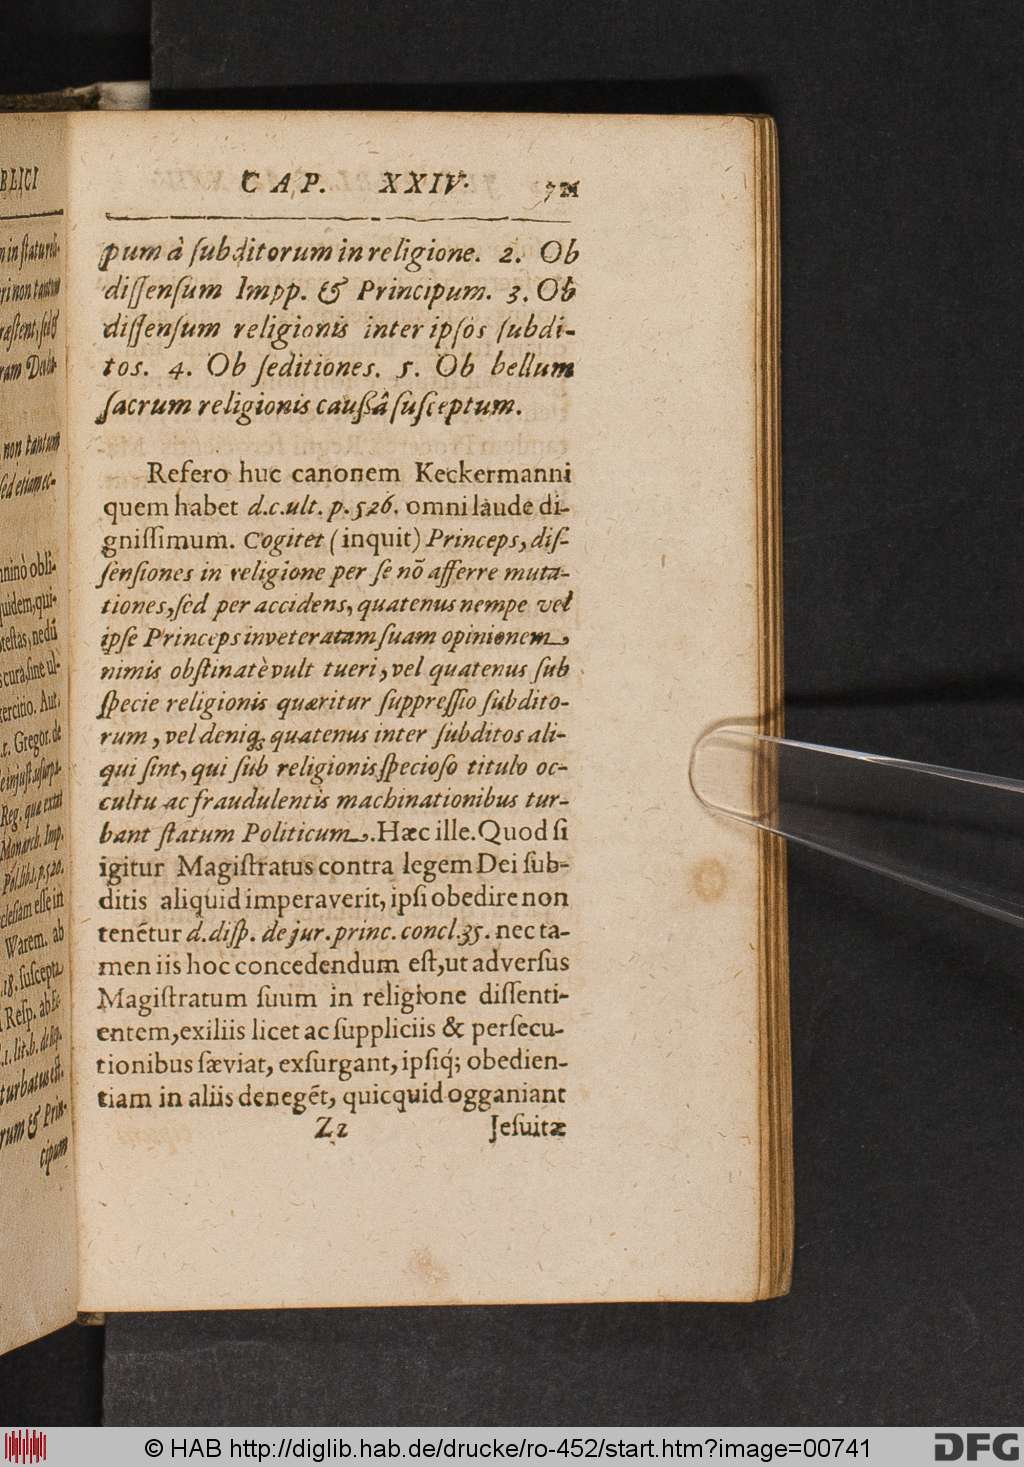 BLICI
non tantum
sed etiam ec-
quidem, qui-
nedũ
Gregor. de
Monarch. Imp.
Warem. ab
turbatus est.
rum & Prin-
cipum
CAP. XXIV. 711
pum à ſubditorum in religione. 2. Ob
diſſenſum Impp. & Principum. 3. Ob
diſſenſum religionis inter ipſos ſubdi-
tos. 4. Ob ſeditiones. 5. Ob bellum
ſacrum religionis cauſſâ ſuſceptum.
Refero huc canonem Keckermanni
quem habet d.c.ult. p. 526. omni laude di-
gniſſimum. Cogitet (inquit) Princeps, diſ-
ſenſiones in religione per ſe nõ afferre muta-
tiones, ſed per accidens, quatenus nempe vel
ipſe Princeps inveteratam ſuam opinionem,
nimis obſtinatè vult tueri, vel quatenus ſub
ſpecie religionis quæritur ſuppreſſio ſubdito-
rum, vel deniq; quatenus inter ſubditos ali-
qui ſint, qui ſub religionis ſpecioſo titulo oc-
cultu ac fraudulentis machinationibus tur-
bant ſtatum Politicum. Hæc ille. Quod ſi
igitur Magiſtratus contra legem Dei ſub-
ditis aliquid imperaverit, ipſi obedire non
tenẽtur d. diſp. de jur. princ. concl. 35. nec ta-
men iis hoc concedendum eſt, ut adverſus
Magiſtratum ſuum in religione diſſenti-
entem, exiliis licet ac ſuppliciis & perſecu-
tionibus ſæviat, exſurgant, ipſiq́; obedien-
tiam in aliis denegẽt, quicquid ogganiant
Zz Jeſuitæ
© HAB http://diglib.hab.de/drucke/ro-452/start.htm?image=00741 DFG